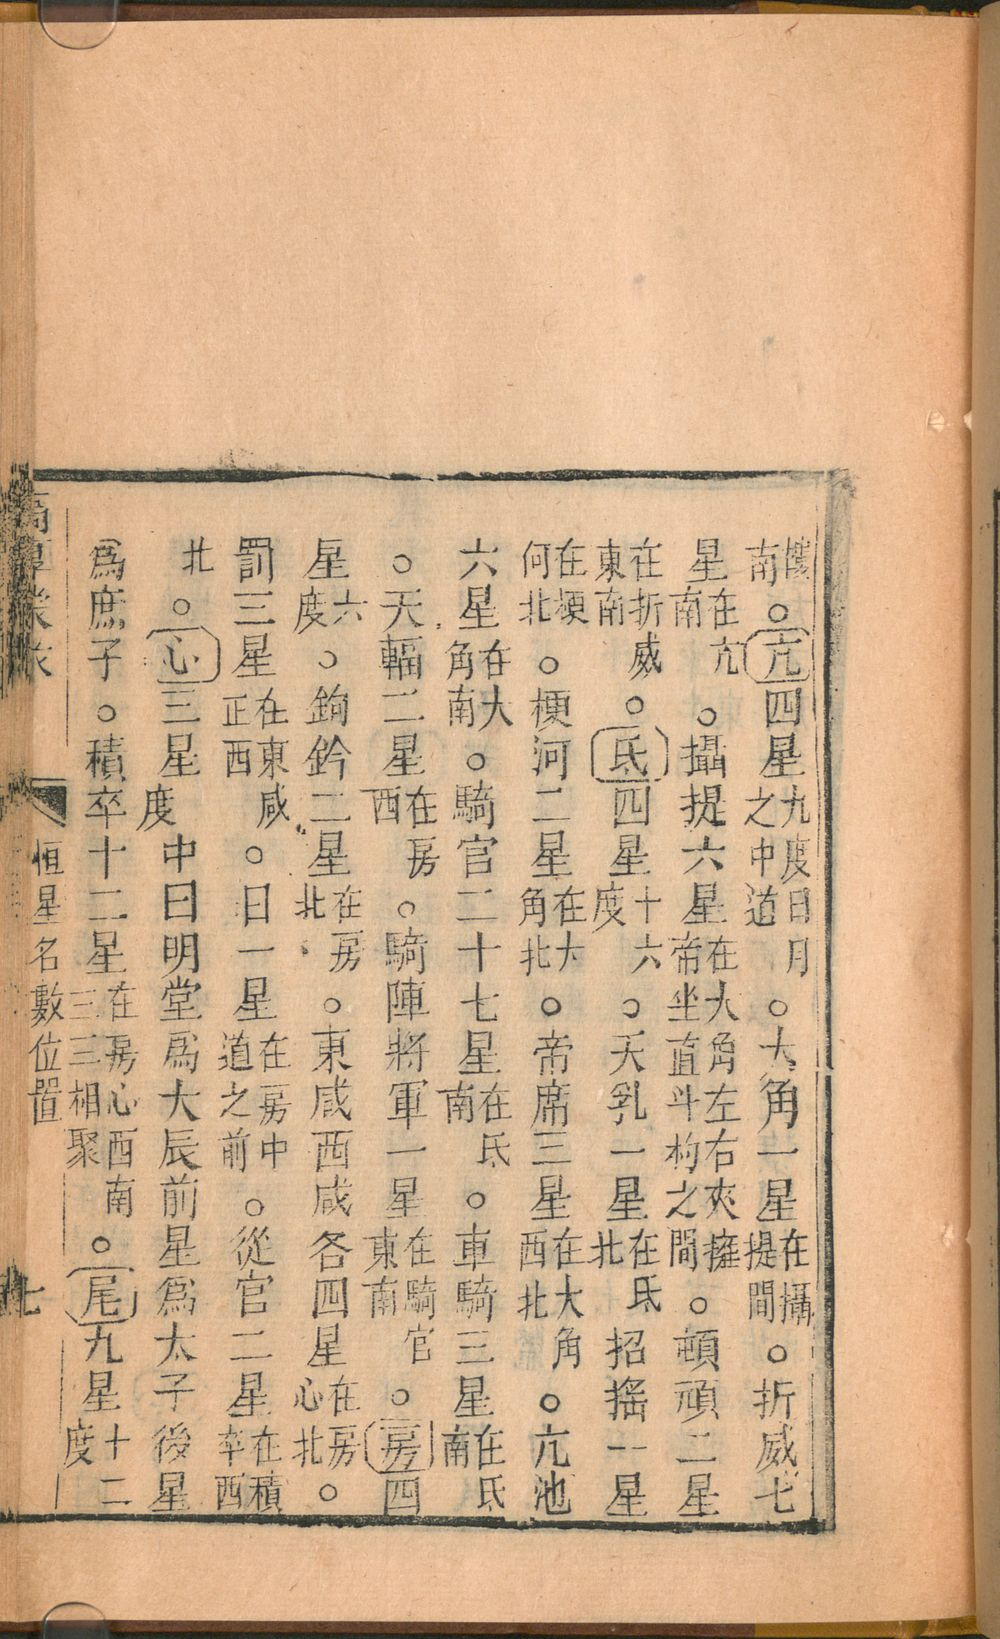 樓南。亢四星九度日月之中道。大角一星在攝提間。折威七
星在亢南。攝提六星在大角左右夾擁帝坐直斗杓之間。頓頑二星
在折威東南。氐四星十六度。天乳一星在氐北招搖一星
在梗何北。梗河二星在大角北。帝席三星在大角西北。亢池
六星在大角南。騎官二十七星在氐南。車騎三星在氐南
。天輻二星在房西。騎陣將軍一星在騎官東南。房四
星六度。鉤鈐二星在房北。東咸西咸各四星在房心北。
罰三星在東咸正西。日一星在房中道之前。從官二星在積卒西
北。心三星度中曰明堂爲大辰前星爲太子後星
爲庶子。積卒十二星在房心西南三三相聚。尾九星十二度
恒星名數位置 七